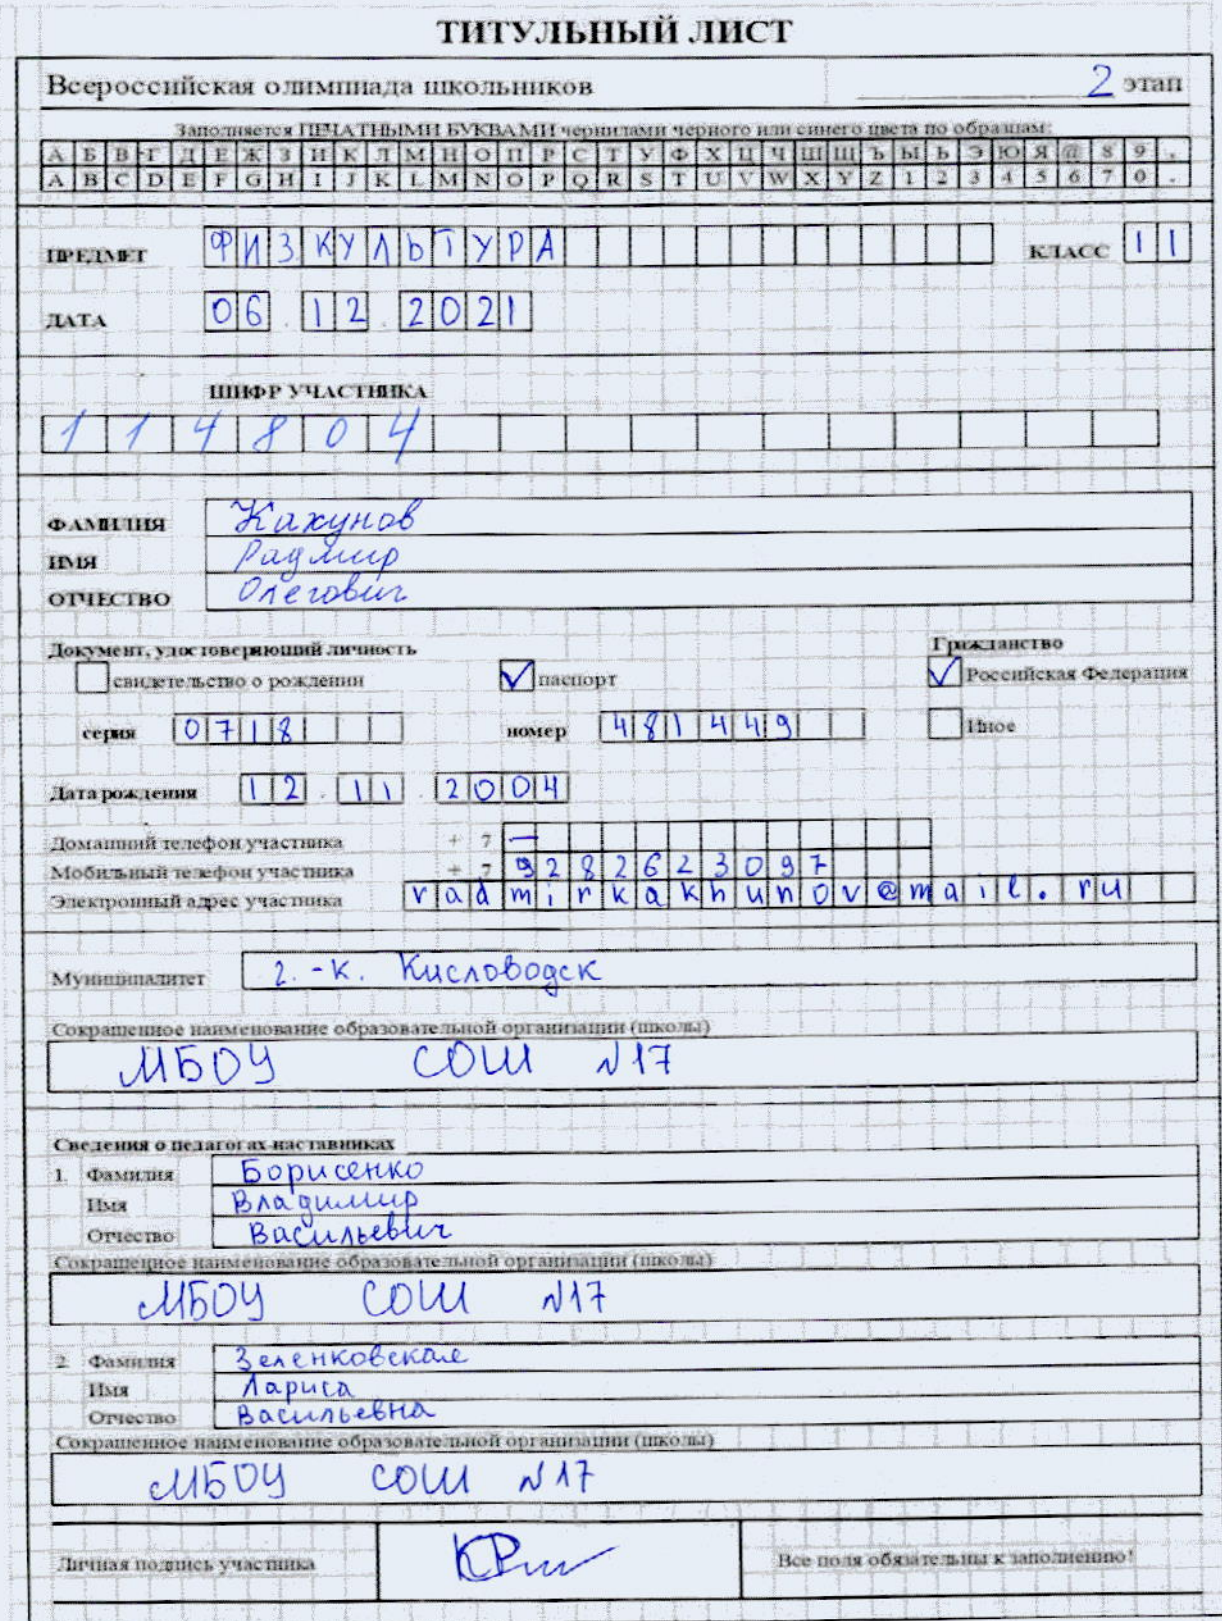 ТИТУЛЬНЫЙ ЛИСТ
Всероссийская олимпиада школьников 2 этап
Заполняется ПЕЧАТНЫМИ БУКВАМИ чернилами черного или синего цвета по образцам:
А Б В Г Д Е Ж З И К Л М Н О П Р С Т У Ф Х Ц Ч Ш Щ Ъ Ы Ь Э Ю Я @ 8 9 ,
A B C D E F G H I J K L M N O P Q R S T U V W X Y Z 1 2 3 4 5 6 7 0 .
ПРЕДМЕТ ФИЗКУЛЬТУРА КЛАСС 11
ДАТА 06.12.2021
ШИФР УЧАСТНИКА
114804
ФАМИЛИЯ Кахунов
ИМЯ Радмир
ОТЧЕСТВО Олегович
Документ, удостоверяющий личность Гражданство
свидетельство о рождении паспорт Российская Федерация
серия 0718 номер 481449 Иное
Дата рождения 12.11.2004
Домашний телефон участника + 7 —
Мобильный телефон участника + 7 9282623097
Электронный адрес участника radmirkakhunov@mail.ru
Муниципалитет г.-к. Кисловодск
Сокращенное наименование образовательной организации (школы)
МБОУ СОШ N17
Сведения о педагогах-наставниках
1. Фамилия Борисенко
Имя Владимир
Отчество Васильевич
Сокращенное наименование образовательной организации (школы)
МБОУ СОШ N17
2. Фамилия Зеленковская
Имя Лариса
Отчество Васильевна
Сокращенное наименование образовательной организации (школы)
МБОУ СОШ N17
Личная подпись участника Все поля обязательны к заполнению!